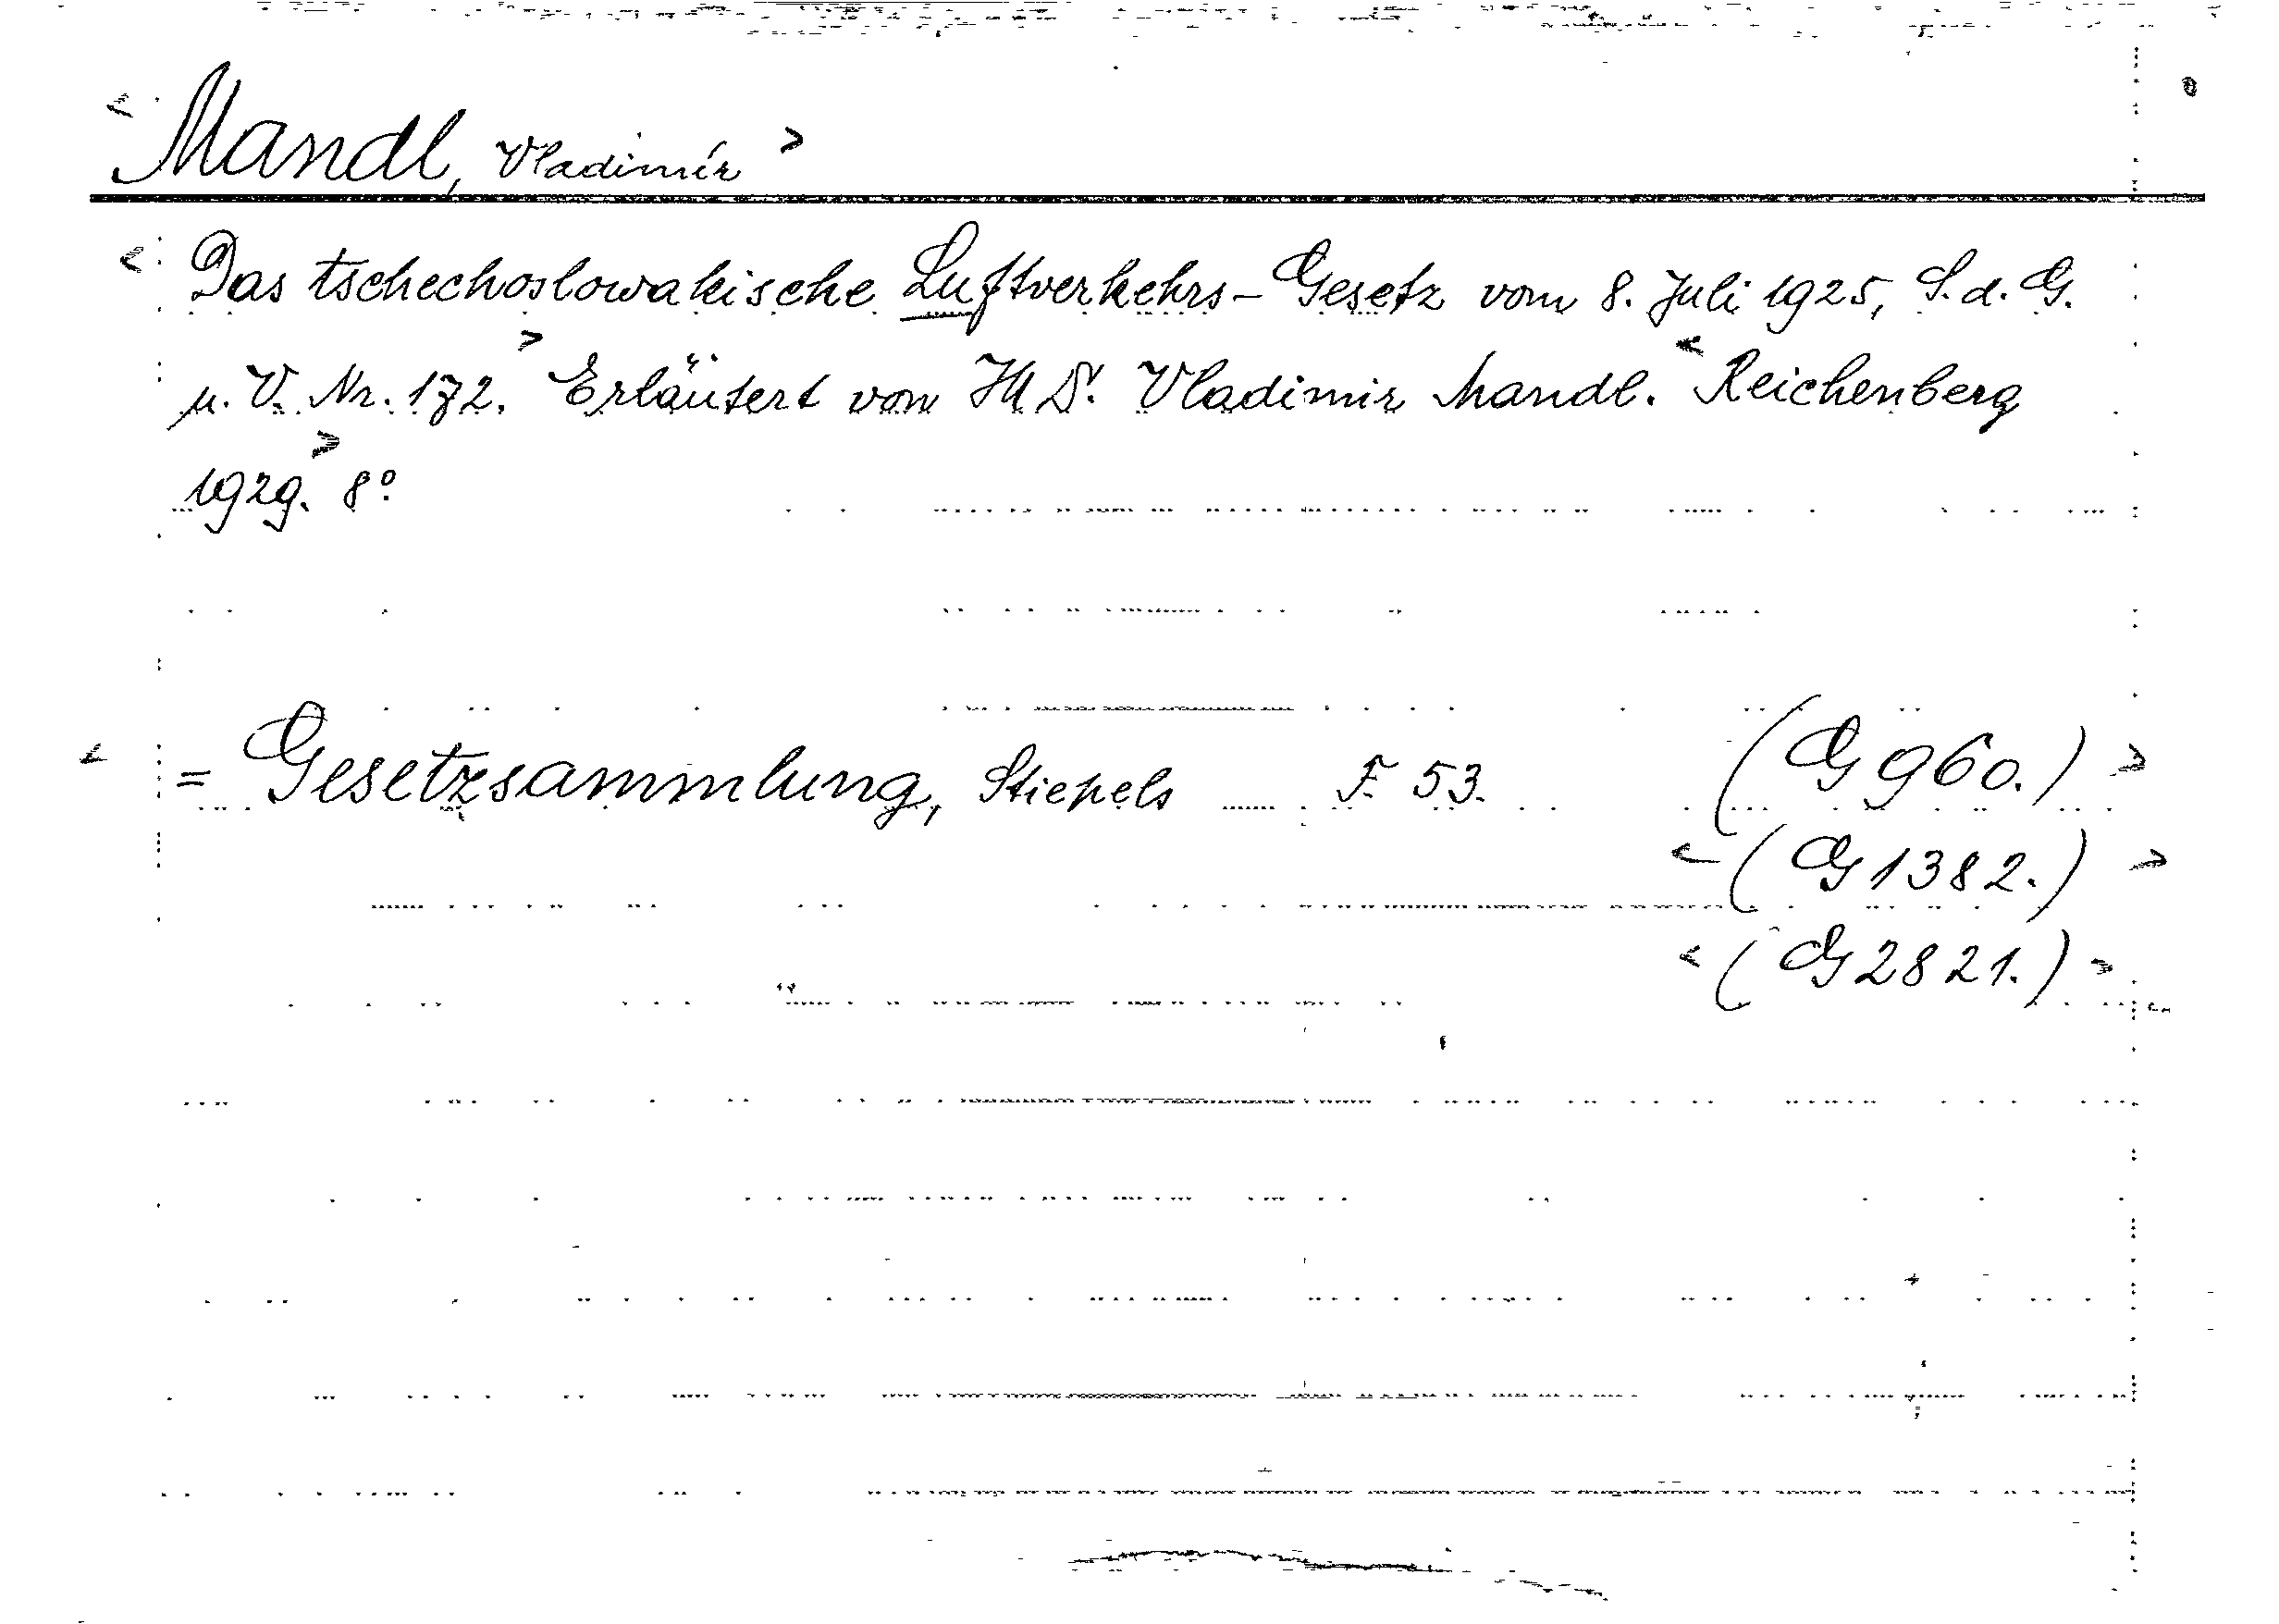 < Mandl, Vladimír >
< Das tschechoslowakische Luftverkehrs-Gesetz vom 8. Juli 1925, S. d. G.
u. V. Nr. 172. > Erläutert von Dr. Vladimir Mandl. < Reichenberg
1929. > 8°
< = Gesetzsammlung, Stiepels F. 53. (G 960.) >
< (G 1382.) >
< (G 2821.) >